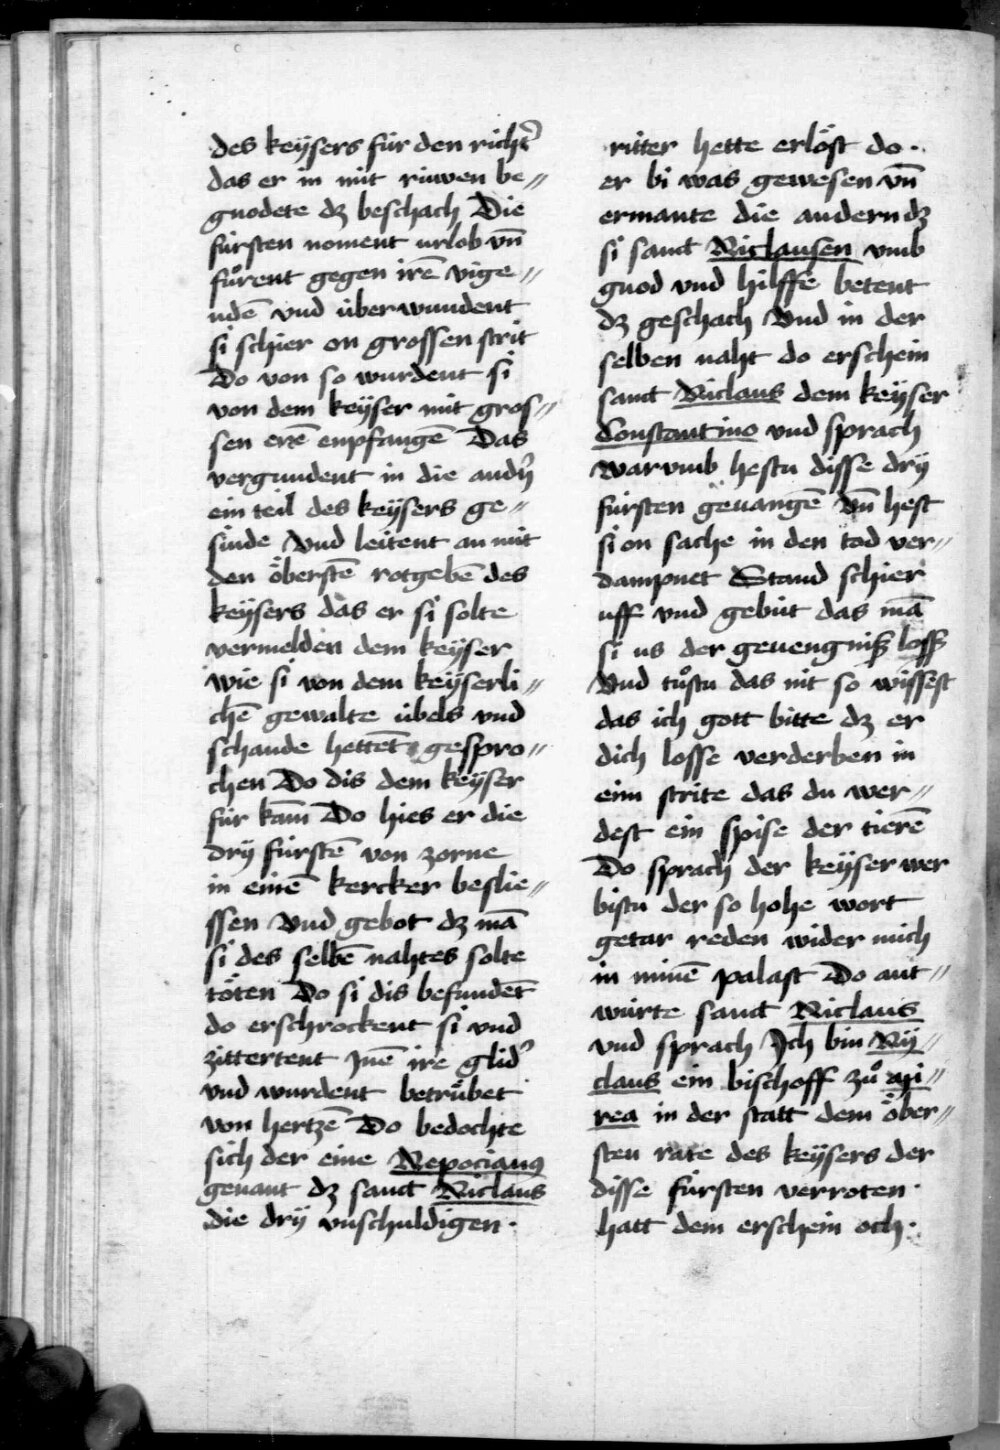 des keÿsers für den richt͛
das er in mit riuwen be⸗
gnodete dz beschach Die
fürsten noment urlob vn̄
fuͦrent gegen irē vige⸗
ndē vnd überwundent
si schier on grossen strit
Do von so wurdent si
von dem keÿser mit gros⸗
sen erē enpfangē Das
vergundent in die andn͛
ein teil des keÿsers ge⸗
sinde Vnd leitent an mit
den öberstē rotgebē des
keÿsers das er si solte
vermelden dem keÿser
wie si von dem keÿserli⸗
chē gewalte übels vnd
schande hettēt gespro⸗
chen Do dis dem keÿser
für kam̄ Do hies er die
drÿ fürstē von zorne
in einē kercker beslie⸗
ssen Vnd gebot dz mā
si des selbē nahtes solte
töten Do si dis befundēt
do erschrockent si vnd
zittertent Jnē ire glid͛
vnd wurdent betrübet
von hertzē Do bedochte
sich der eine Nepocianꝰ
genant dz sanct Niclaus
die drÿ vnschuldigen·
ritter hette erlöst do·
er bi was gewesen vn̄
ermante die andern dz
si sanct Niclausen vmb
gnod vnd hilffe betent
dz geschach Vnd in der
selben naht do erschein
sanct Niclaus dem keÿser
Constantino vnd sprach
warvmb hestu disse drÿ
fürsten geuangē Vn̄ hest
si on sache in den tod ver⸗
dampnet Stand schier
uff vnd gebüt das mā
si us der geuengniß loss
Vnd tuͦstu das nit so wissest
das ich gott bitte dz er
dich losse verderben in
eim strite das du wer⸗
dest ein spise der tierē
Do sprach der keÿser wer
bistu der so hohe wort
getar reden wider mich
in minē palast Do ant⸗
würte sanct Niclaus
vnd sprach Jch bin Nÿ⸗
claus ein bischoff zuͦ mi⸗
rea in der statt dem öber⸗
sten rate des keÿsers der
disse fürsten verroten·
hatt dem erschein och·